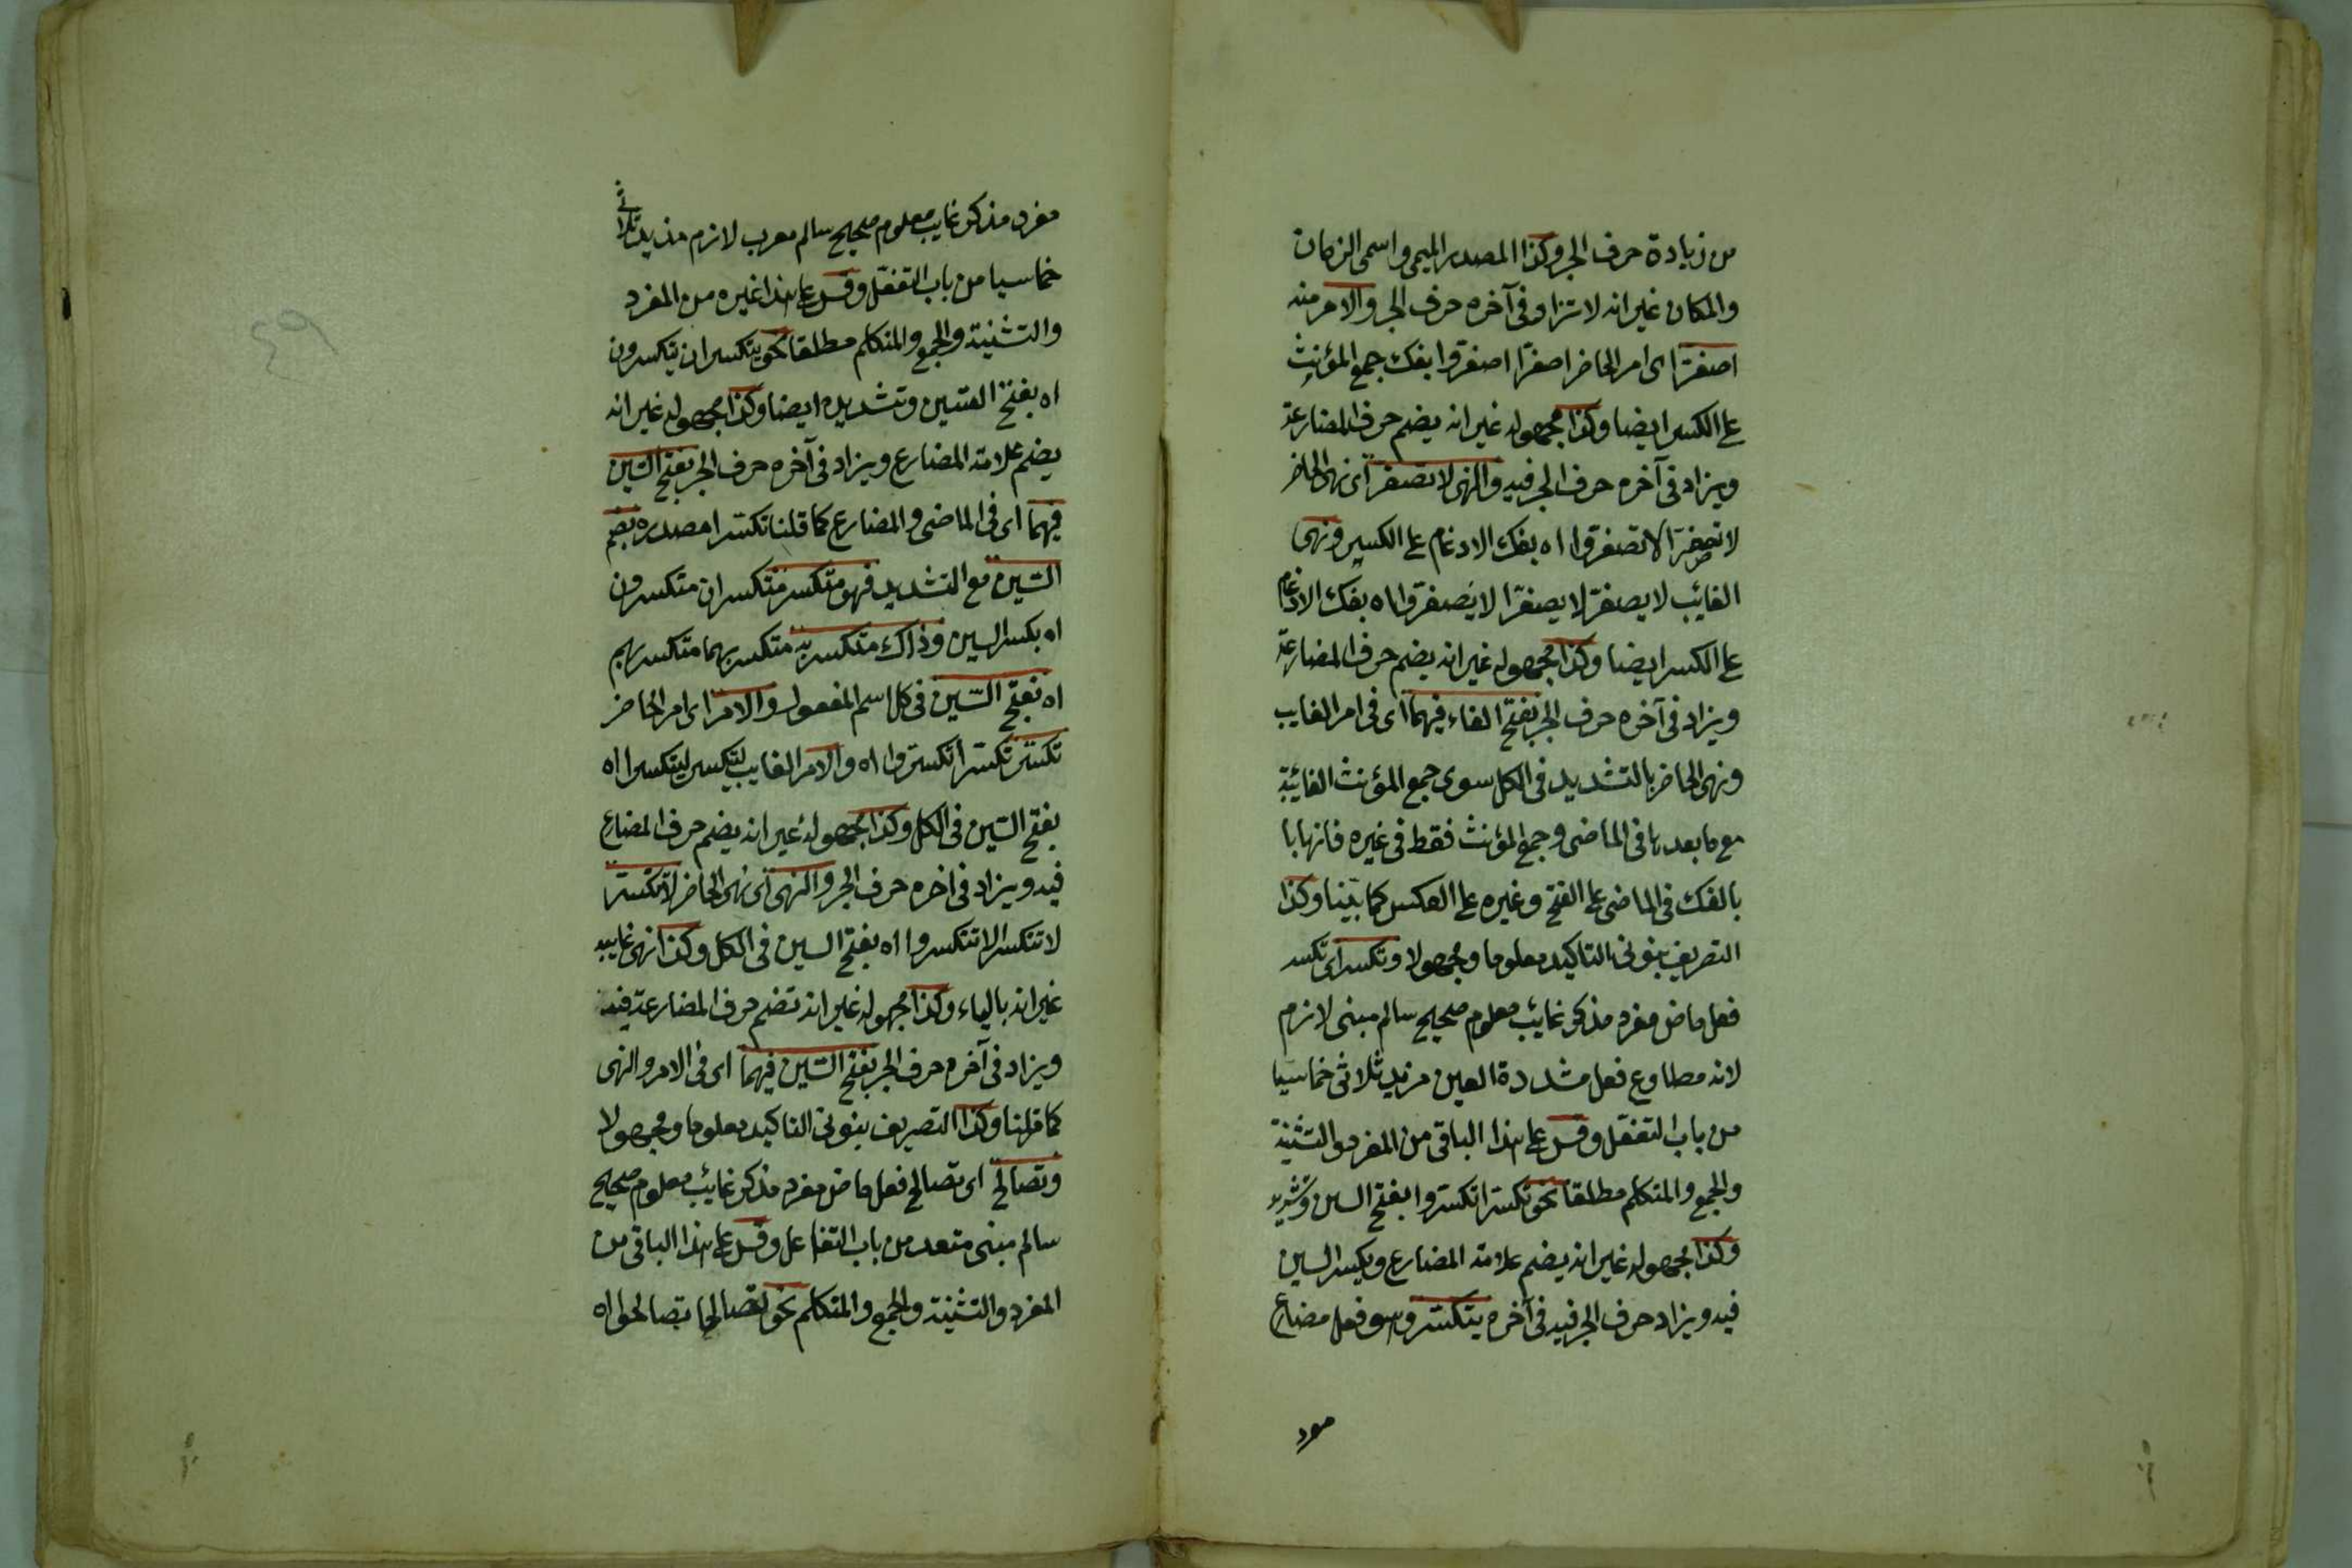 من زيادة حرف الجر وكذا المصدر الميمى واسمى الزمان
والمكان غير انه لا تزاد فى آخره حرف الجر والامر منه
اصفرّ اى امر الحاضر اصفرّا اصفرّوا بفك جمع المؤنث
على الكسر ايضا وكذا مجهوله غير انه يضم حرف المضارعة
ويزاد فى آخره حرف الجر فيه والنهى لا تصفرّ اى نهى الحاضر
لا تصفرّا لا تصفرّوا اه بفك الادغام على الكسر ونهى
الغائب لا يصفرّ لا يصفرّا لا يصفرّوا اه بفك الادغام
على الكسر ايضا وكذا مجهوله غير انه يضم حرف المضارعة
ويزاد فى آخره حرف الجر بفتح الفاء فيهما اى فى امر الغايب
ونهى الحاضر بالتشديد فى الكل سوى جمع المؤنث الغائبة
مع ما بعدها فى الماضى وجمع المؤنث فقط فى غيره فانها با
بالفك فى الماضى على الفتح وغيره على العكس كما بيّنا وكذا
التصريف بنونى التاكيد معلوما ومجهولا وتكسر اى تكسر
فعل ماض مفرد مذكر غائب معلوم صحيح سالم مبنى لازم
لانه مطاوع فعل مشددة العين مزيد ثلاثى خماسيا
من باب التفعّل وقس على هذا الباقى من المفرد والتثنية
والجمع والمتكلم مطلقا نحو تكسّرا تكسّروا بفتح السين وتشديد
وكذا مجهوله غير انه يضم علامة المضارع ويكسر السين
فيه ويزاد حرف الجر فيه فى آخره يتكسّر وهو فعل مضارع
مفرد مذكر غايب معلوم صحيح سالم معرب لازم مزيد ثلاثى
خماسيا من باب التفعّل وقس على هذا غيره من المفرد
والتثنية والجمع والمتكلم مطلقا نحو يتكسران يتكسرون
اه بفتح السين وتشديده ايضا وكذا مجهوله غير انه
يضم علامة المضارع ويزاد فى آخره حرف الجر بفتح السّين
فيهما اى فى الماضى والمضارع كما قلنا تكسّرا مصدره بضم
السّين مع التشديد فهو متكسر متكسران متكسرون
اه بكسر السين وذاك متكسر به متكسر بهما متكسر بهم
اه بفتح السّين فى كل اسم المفعول والامر اى امر الحاضر
تكسّر تكسّرا تكسّروا اه والامر الغايب ليتكسر ليتكسرا اه
بفتح السّين فى الكل وكذا مجهوله غير انه يضم حرف المضارع
فيه ويزاد فى اخره حرف الجر والنهى اى نهى الحاضر لا تتكسّر
لا تتكسرا لا تتكسروا اه بفتح السين فى الكل وكذا نهى غايبه
غير انه بالياء وكذا مجهوله غير انه تضم حرف المضارعة فيه
ويزاد فى آخره حرف الجر بفتح السّين فيهما اى فى الامر والنهى
كما قلنا وكذا التصريف بنونى التاكيد معلوما ومجهولا
وتصالح اى تصالح فعل ماض مفرد مذكر غائب معلوم صحيح
سالم مبنى متعد من باب التفاعل وقس على هذا الباقى من
المفرد والتثنية والجمع والمتكلم نحو تصالحا تصالحوا اه